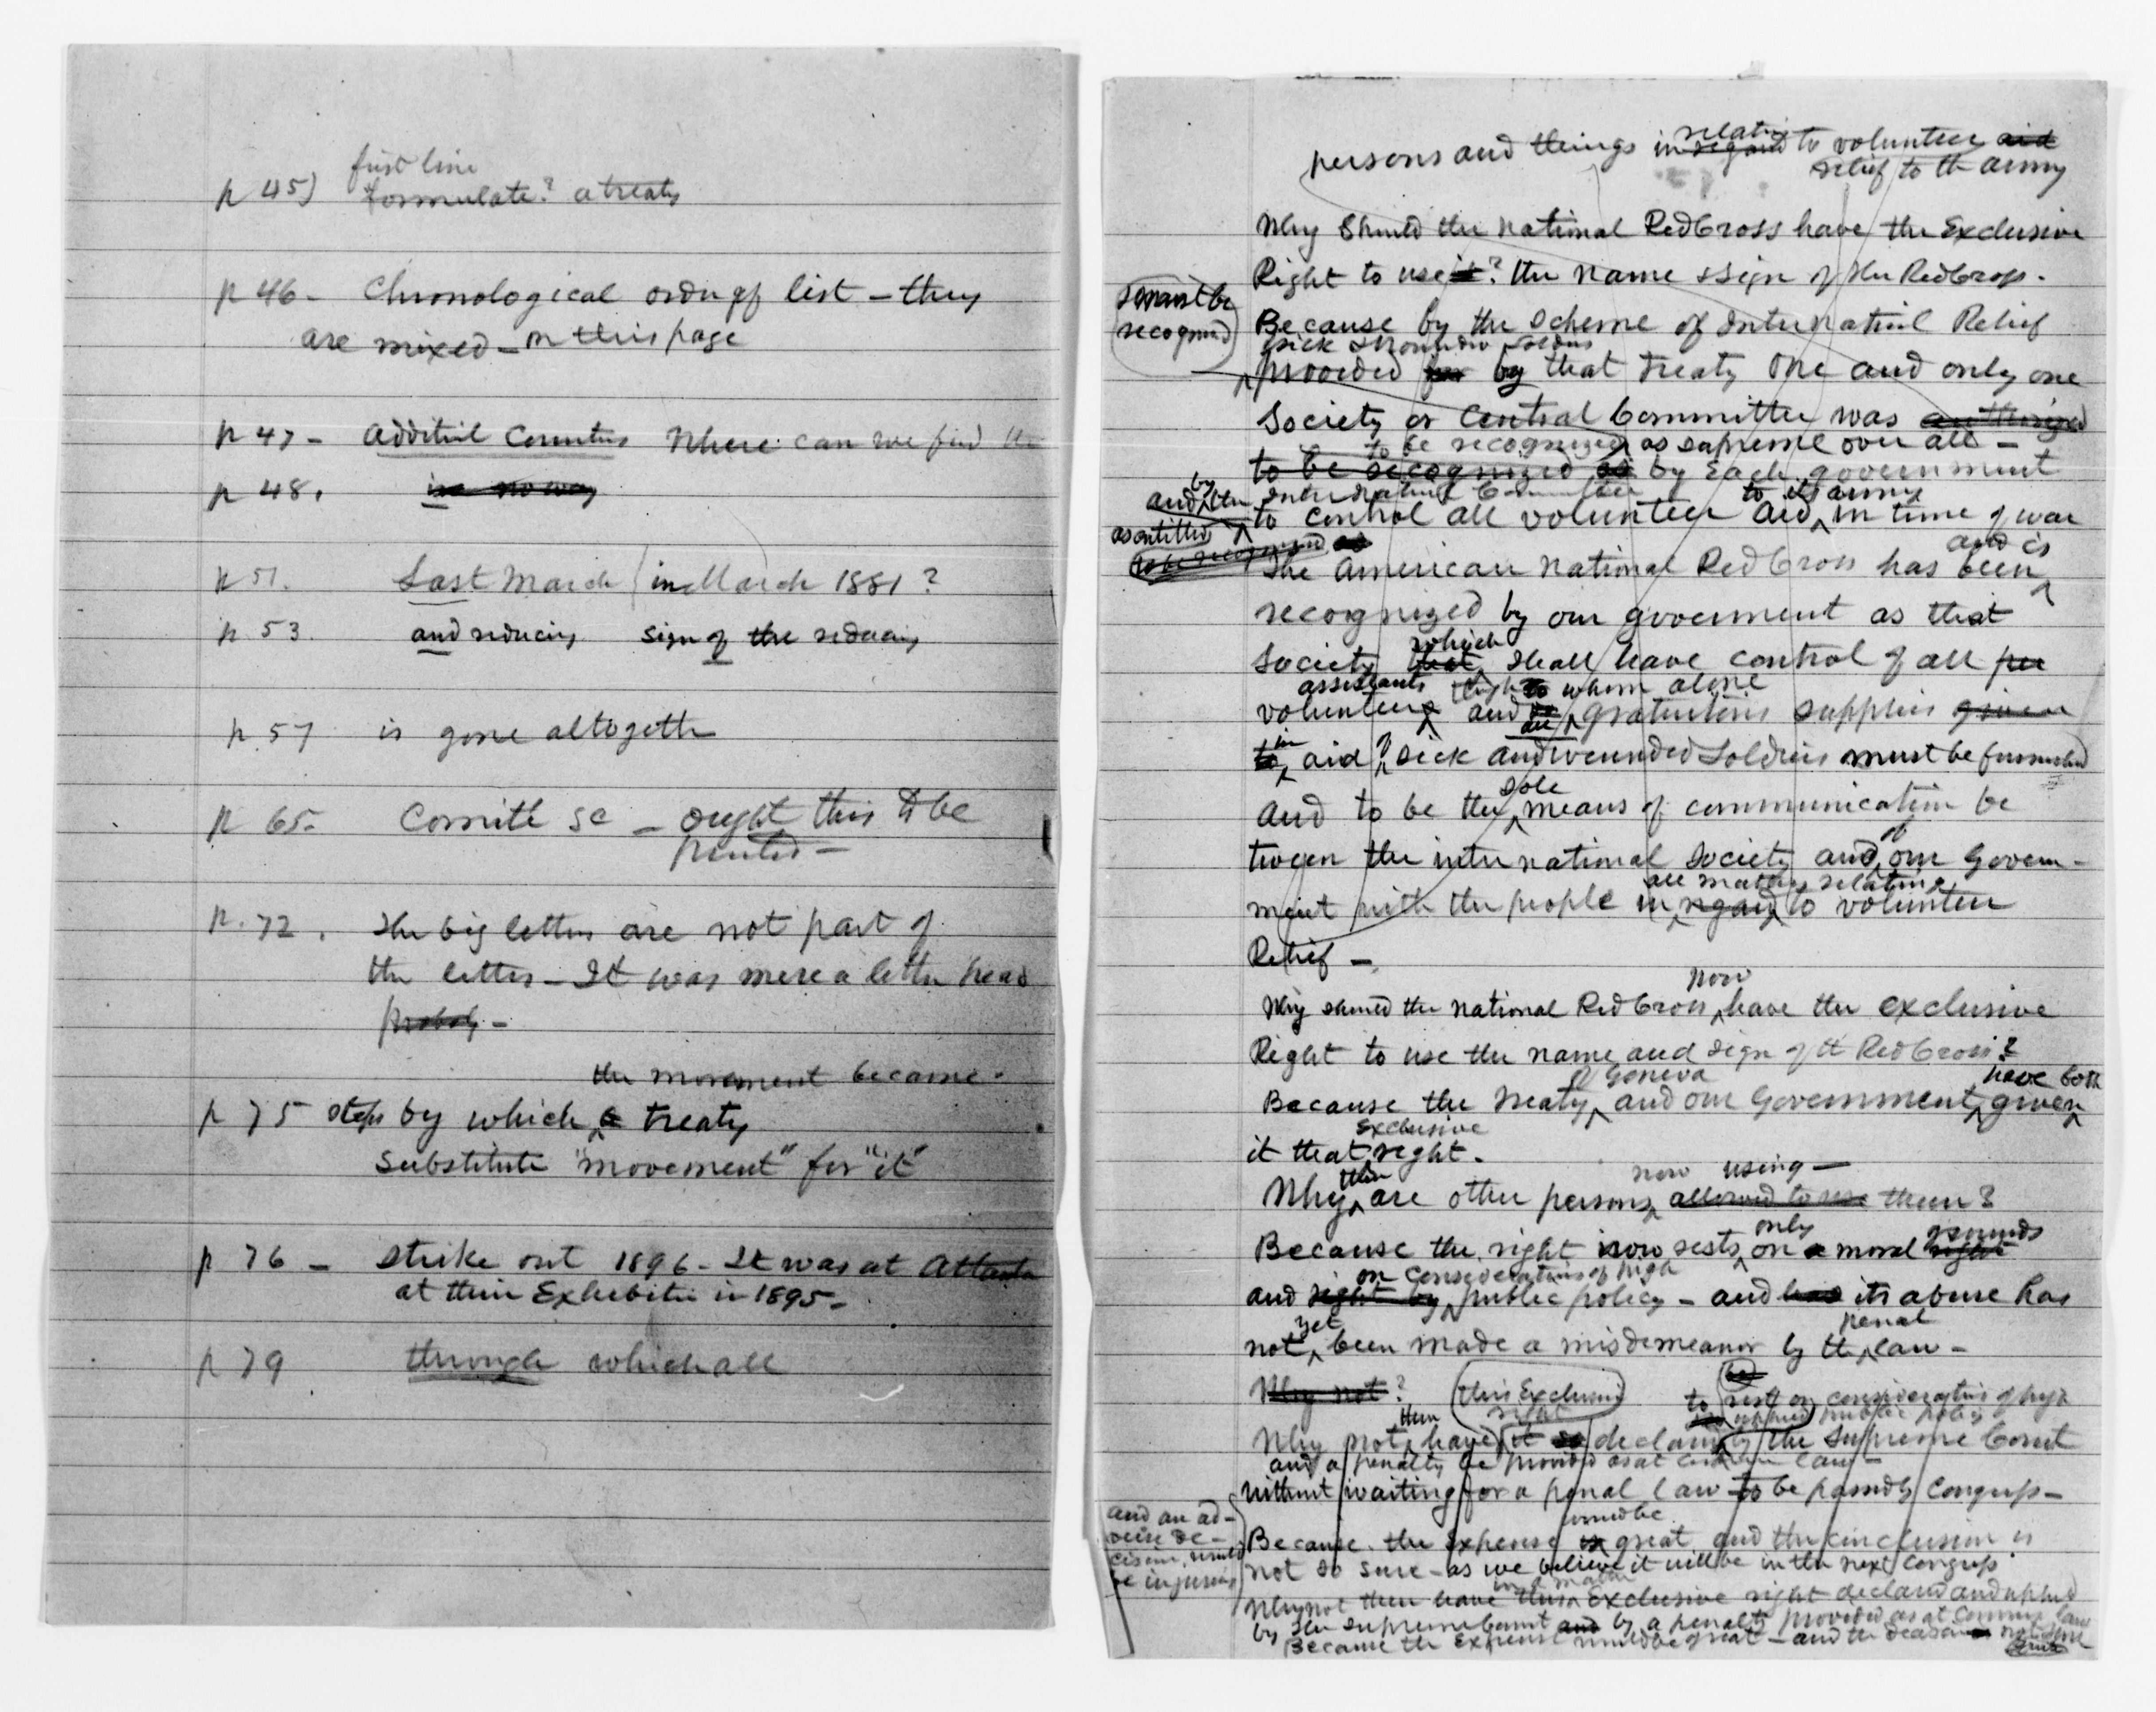 first line
p 45) formulate? a treaty
p 46 - Chronological order of list - they
are mixed - on this page
p 47 - Additnl Countries Where can we find the
p 48. no way
p 51. Last March / in March 1881?
p 53. and reducing sign of the reducing
p 57 is gone altogether
p 65. Comite se - ought this to be
printed -
p. 72. The big letters are not part of
the letter - It was mere a letter head
probably -
the movement became.
p 75 steps by which treaty
substitute "movement" for "it"
p 76 - Strike out 1896 - It was at Atlanta
at their Exhibition in 1895.
p 79 through which all
persons and things in regard relative to volunteer aid
relief to th army
Why should the National Red Cross have the Exclusive
Right to use it? the name & sign of the Red Cross.
must be
recognized
Because by the Scheme of International Relief
sick & wounded
provided for by that treaty one and only one
Society or Central Committee was authorized
to be recognized as supreme over all -
to be recognized as by each government
and by the International Committee to its army
to control all volunteer aid in time of war
as entitled
to be recognized as
and is
The American National Red Cross has been
recognized by our government as that
which
Society that shall have control of all per
assistants through whom alone
volunteer and all gratuitous supplies given
in of
to aid sick and wounded soldiers must be furnished
sole
and to be the means of communication be
of
tween the international Society and our Govern-
all matters relating
ment with the people in regard to volunteer
Relief -
now
Why should the National Red Cross have the exclusive
Right to use the name and sign of th Red Cross?
of Geneva have both
Because the Treaty and our Government given
exclusive
it that right.
then now using -
Why are other persons allowed to use them?
only grounds
Because the right now rests on a moral right
on considerations of high
and right by public policy - and has its abuse has
yet penal
not been made a misdemeanor by the law -
Why not? this Exclusive
right
to rest on considerations of high
public policy
then
Why not have it so declared by the Supreme Court
and a penalty be provided as at common law -
without waiting for a penal law to be passed by Congress -
would be
and an ad-
verse de-
cision would
be injurious
Because the expense is great and the conclusion is
not so sure - as we believe it will be in the next Congress
Why not then have this exclusive right declared and upheld
by the Supreme Court and by a penalty provided as at common law
Because the Expense would be great - and the decision not sure